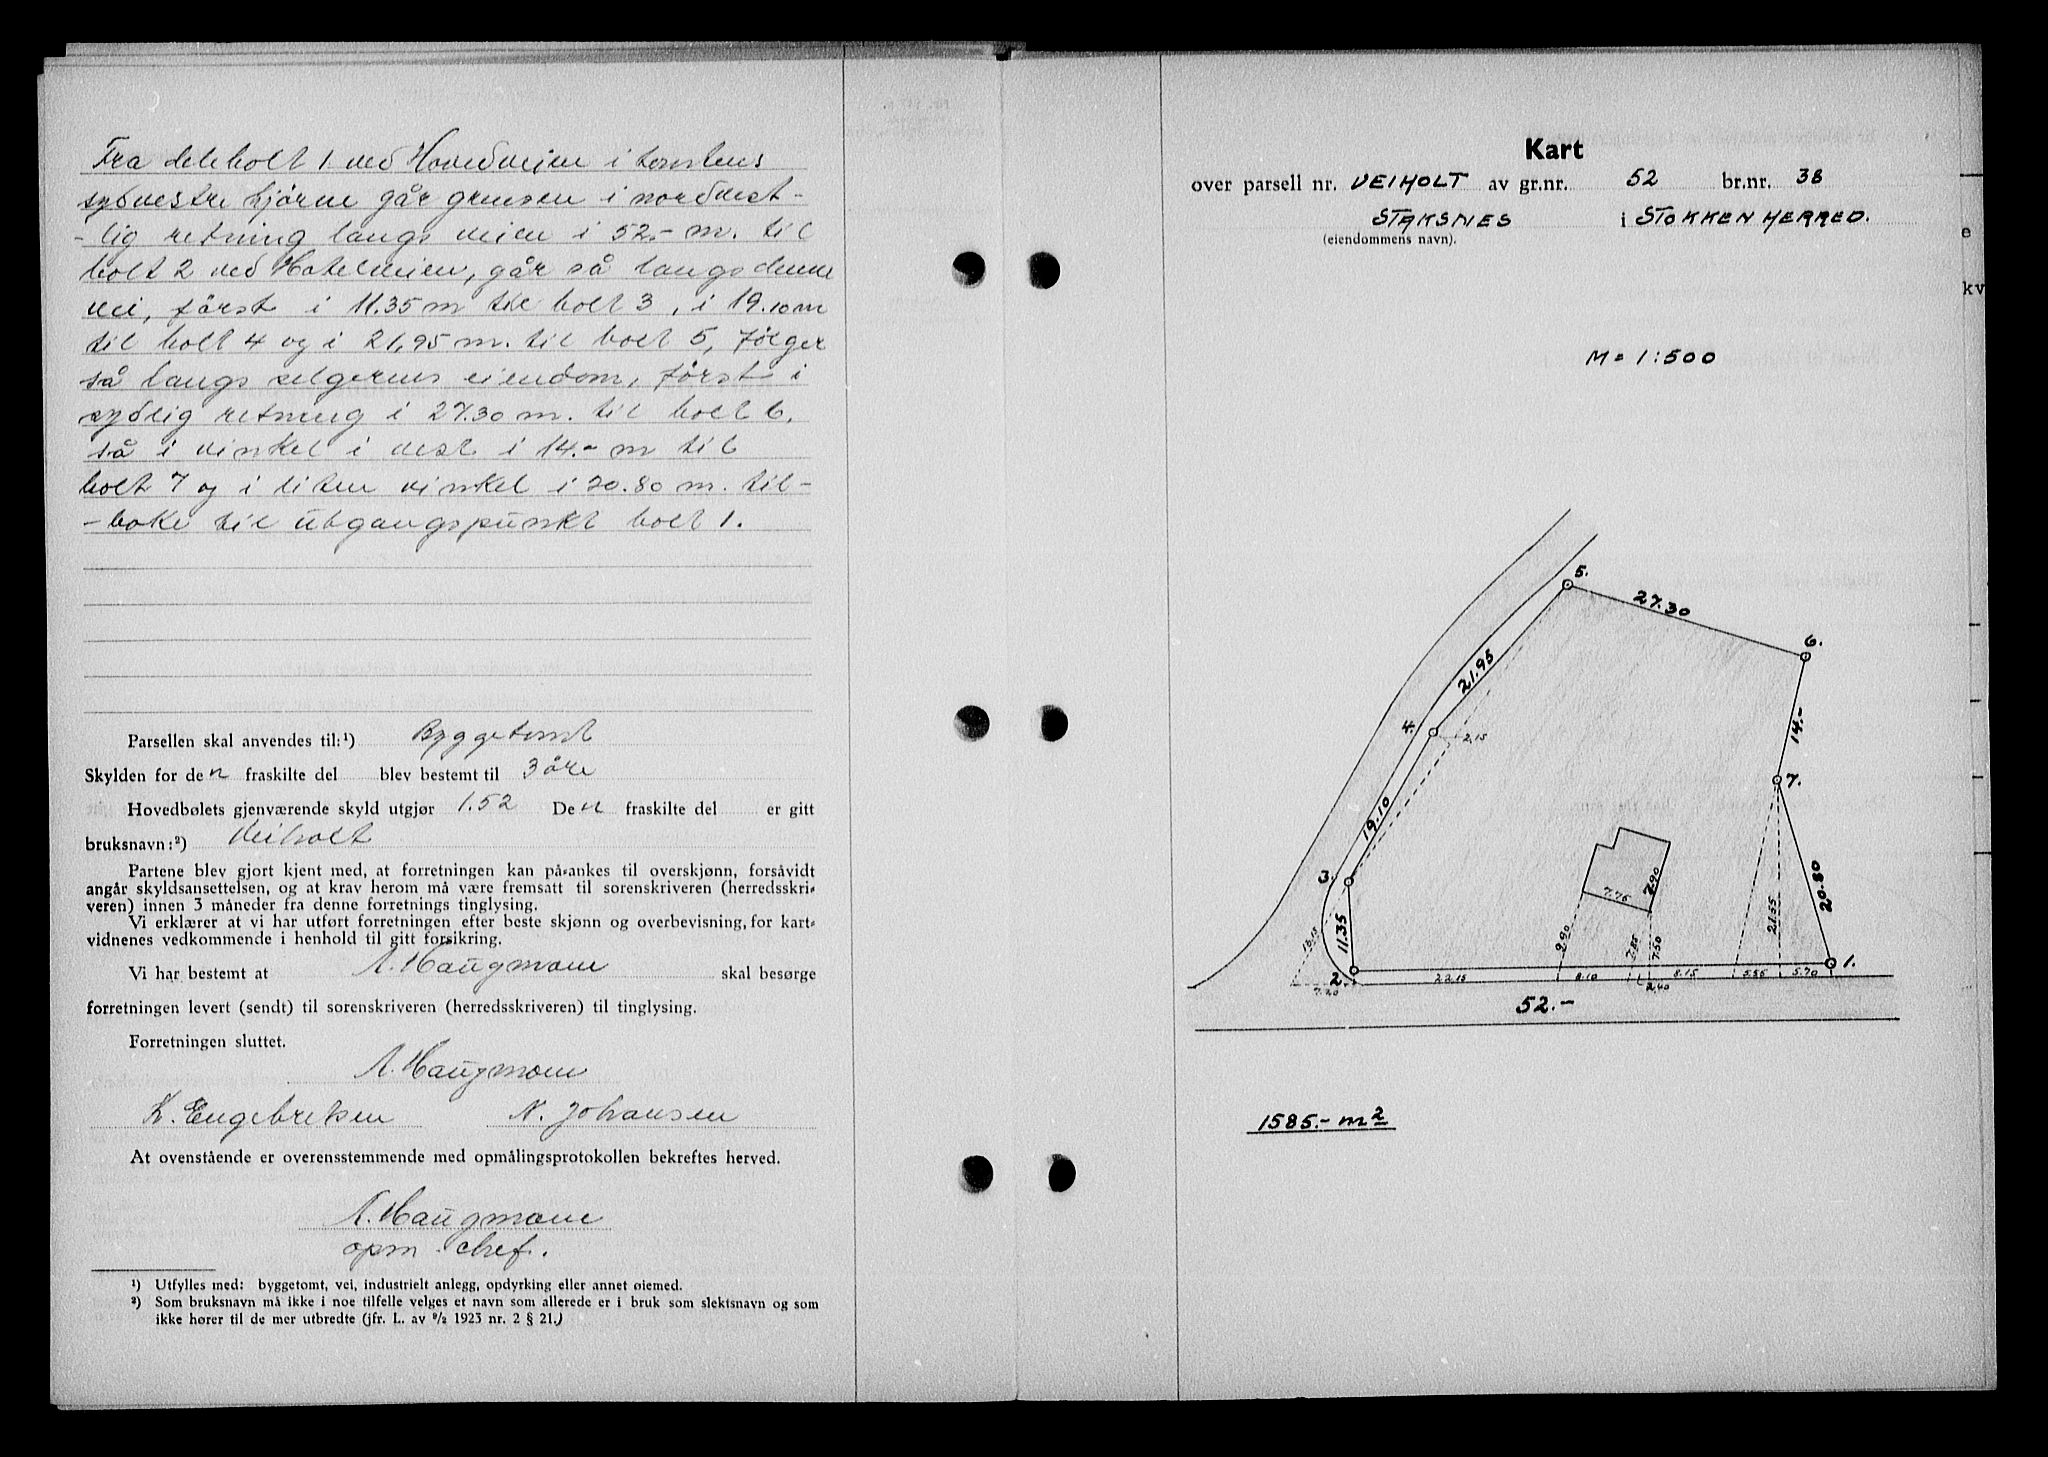 Fra delebolt 1 ved Hovedveien i tomtens
sydvestre hjørne går grensen i nordvest-
-lig retning langs veien i 52.- m. til
bolt 2 ved Hotelveien, går så langs denne
vei, først i 11.35 m til bolt 3, i 19.10 m
til bolt 4 og i 21,95 m. til bolt 5, Følger
så langs selgerens eiendom, først i
sydlig retning i 27.30 m. til bolt 6,
så i vinkel i vest i 14.- m til
bolt 7 og i liten vinkel i 20.80 m. til-
-bake til utgangspunkt bolt 1.
Parsellen skal anvendes til:¹) Byggetomt
Skylden for den fraskilte del blev bestemt til 3 øre
Hovedbølets gjenværende skyld utgjør 1.52 Den fraskilte del er gitt
bruksnavn:²) Veiholt
Partene blev gjort kjent med, at forretningen kan på-ankes til overskjønn, forsåvidt
angår skyldsansettelsen, og at krav herom må være fremsatt til sorenskriveren (herredsskri-
veren) innen 3 måneder fra denne forretnings tinglysing.
Vi erklærer at vi har utført forretningen efter beste skjønn og overbevisning, for kart-
vidnenes vedkommende i henhold til gitt forsikring.
Vi har bestemt at A. Haugmoen skal besørge
forretningen levert (sendt) til sorenskriveren (herredsskriveren) til tinglysing.
Forretningen sluttet.
A. Haugmoen
K. Engebretsen N. Johansen
At ovenstående er overensstemmende med opmålingsprotokollen bekreftes herved.
A. Haugmoen
opm. chef.
¹) Utfylles med: byggetomt, vei, industrielt anlegg, opdyrking eller annet øiemed.
²) Som bruksnavn må ikke i noe tilfelle velges et navn som allerede er i bruk som slektsnavn og som
ikke hører til de mer utbredte (jfr. L. av ⁹/₂ 1923 nr. 2 § 21.)
Kart
over parsell nr. VEIHOLT av gr.nr. 52 br.nr. 38
STAKSNES i STOKKEN HERRED.
(eiendommens navn).
e
kv
M = 1:500
5.
27.30
6.
21.95
4.
2.15
14.-
7.
19.10
3.
7.76
7.90
20.80
21.55
11.35
16.15
9.90
7.85
7.50
2
1.
7.20
22.15
8.10
2.40
8.15
5.55
5.70
52.-
1585.- m²